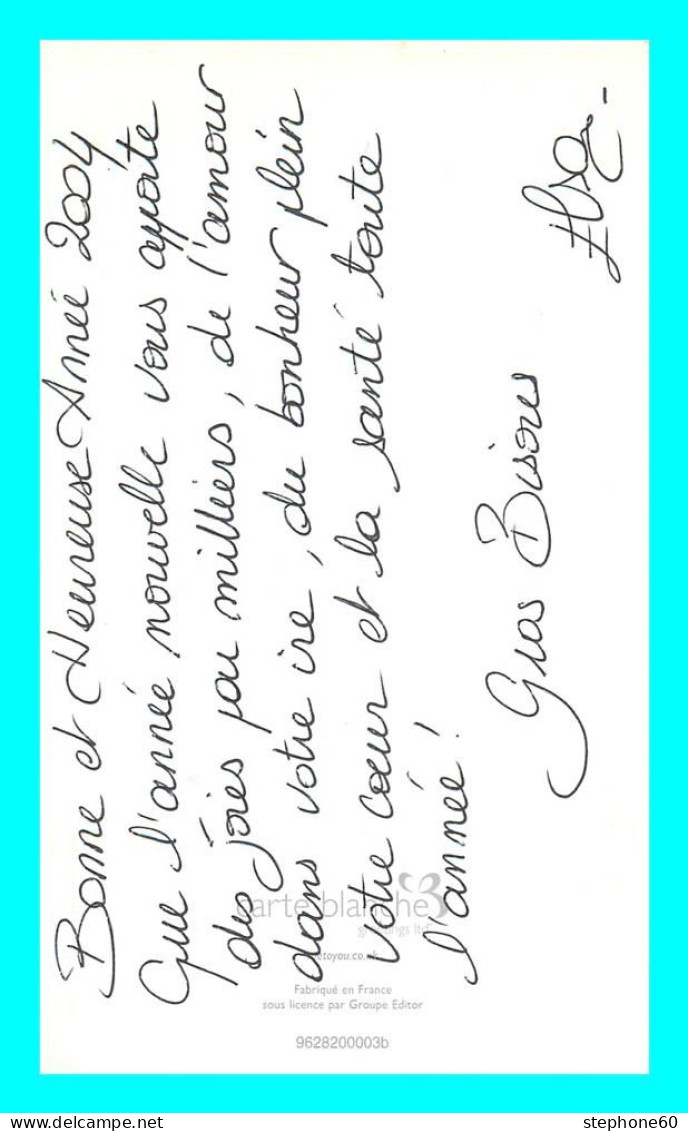 Bonne et Heureuse Année 2004
Que l'année nouvelle vous apporte
des joies par milliers, de l'amour
dans votre vie, du bonheur plein
votre cœur et la santé toute
l'année!
Gros Bisous
Elsa
carte blanche
greetings ltd
metoyou.co.uk
Fabriqué en France
sous licence par Groupe Editor
9628200003b
stephone60